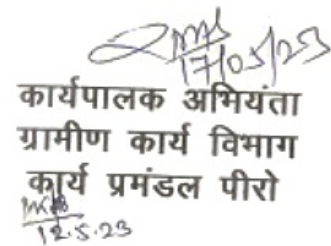 17/05/23
कार्यपालक अभियंता
ग्रामीण कार्य विभाग
कार्य प्रमंडल पीरो
12.5.23